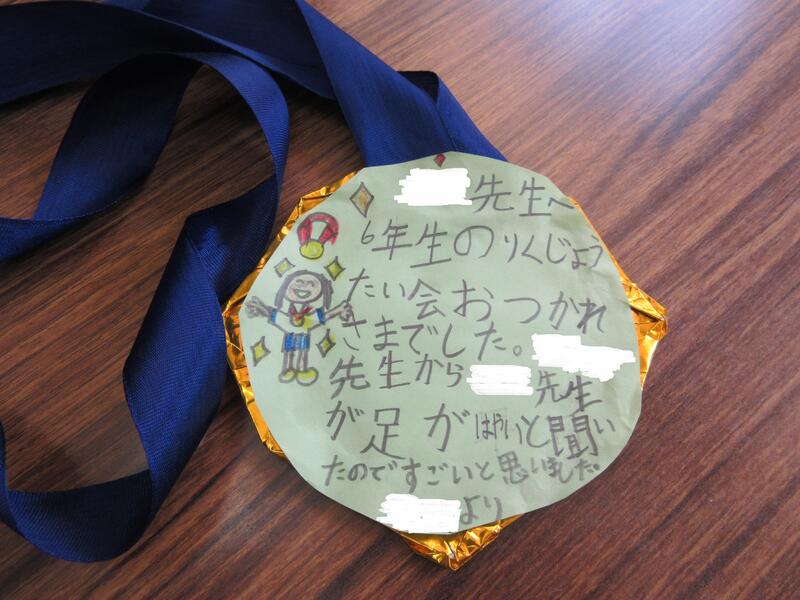 先生へ
6年生のりくじょう
たい会おつかれ
さまでした。
先生から 先生
が足がはやいと聞い
たのですごいと思いました。
より